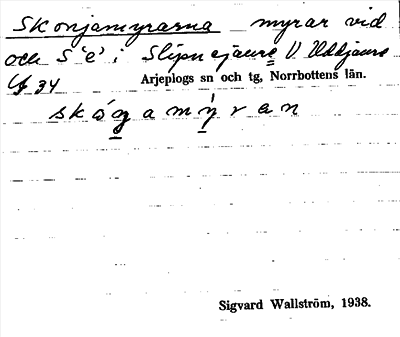 Skonjamyrarna myrar vid
och S'e' i Slipnejaure V. Uddjaure
34 Arjeplogs sn och tg, Norrbottens län.
Sigvard Wallström, 1938.